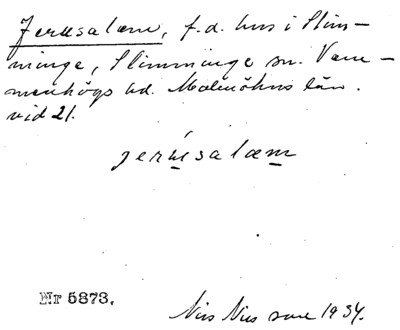 Jerusalem, f.d. hus i Slim-
minge, Slimminge sn. Vem-
menhögs hd. Malmöhus län.
vid 21.
jerúsalæm
Nr 5373.
Nils Nilsson 1934.